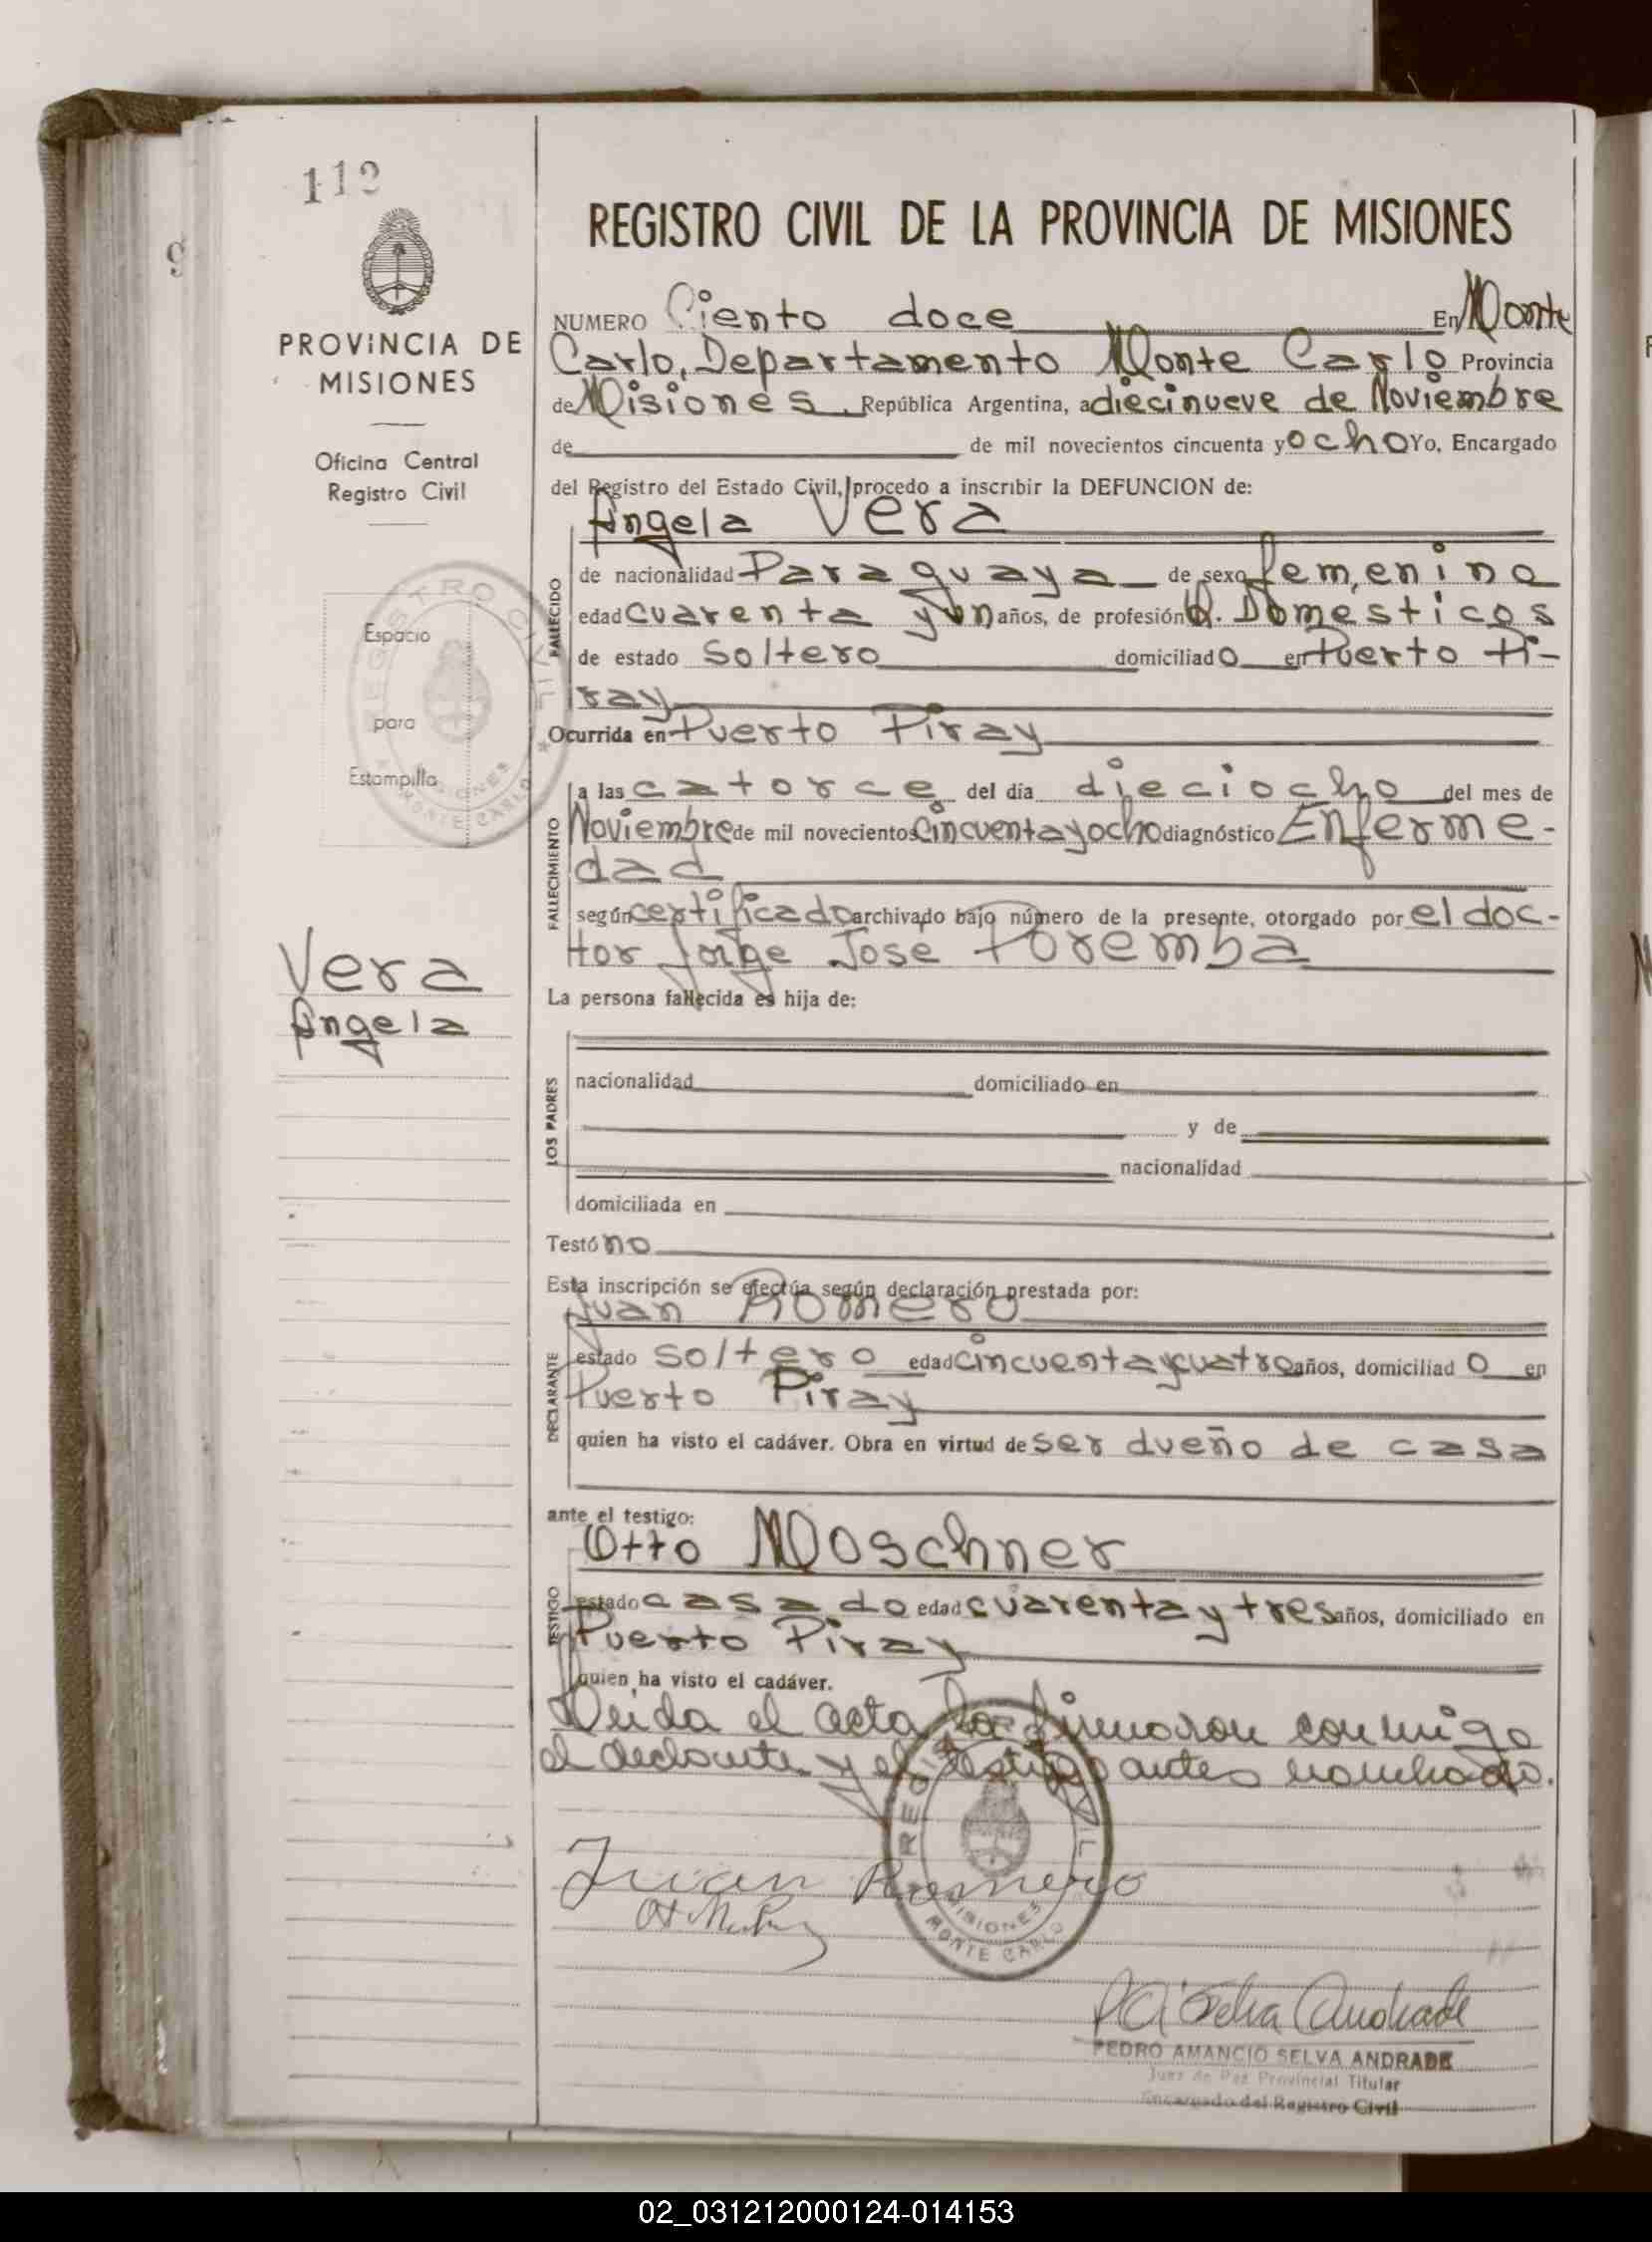 112
9
PROVINCIA DE
MISIONES
Oficina Central
Registro Civil
REGISTRO CIVIL
Espacio
para
Estampilla
MISIONES
MONTE CARLO
Vera
Angela
REGISTRO CIVIL DE LA PROVINCIA DE MISIONES
NUMERO Ciento doce En Monte
Carlo, Departamento Monte Carlo Provincia
de Misiones, República Argentina, a diecinueve de Noviembre
de de mil novecientos cincuenta y ocho Yo, Encargado
del Registro del Estado Civil, procedo a inscribir la DEFUNCION de:
Angela Vera
FALLECIDO
de nacionalidad Paraguaya de sexo femenino
edad cuarenta y un años, de profesión Q. Domesticos
de estado Soltero domiciliado en Puerto Pi-
ray
Ocurrida en Puerto Piray
FALLECIMIENTO
a las catorce del día dieciocho del mes de
Noviembre de mil novecientos cincuenta y ocho diagnóstico Enferme-
dad
según certificado archivado bajo número de la presente, otorgado por el doc-
tor Jorge Jose Poremba
La persona fallecida es hija de:
LOS PADRES
nacionalidad domiciliado en
y de
nacionalidad
domiciliada en
Testó no
Esta inscripción se efectúa según declaración prestada por:
Juan Romero
DECLARANTE
estado soltero edad cincuenta y cuatro años, domiciliado en
Puerto Piray
quien ha visto el cadáver. Obra en virtud de ser dueño de casa
ante el testigo:
Otto Moschner
TESTIGO
estado casado edad cuarenta y tres años, domiciliado en
Puerto Piray
quien ha visto el cadáver.
Leida el acta la firmaron conmigo
el declarante y el testigo antes nombrado.
REGISTRO CIVIL
MISIONES
MONTE CARLO
Juan Romero
P A Selva Andrade
PEDRO AMANCIO SELVA ANDRADE
Juez de Paz Provincial Titular
Encargado del Registro Civil
02_031212000124-014153